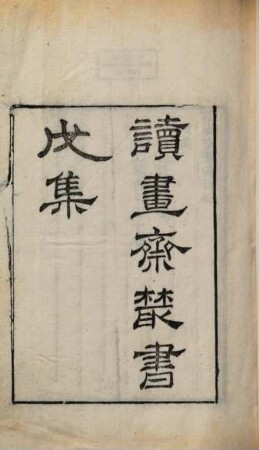 讀畫齋叢書
戊集